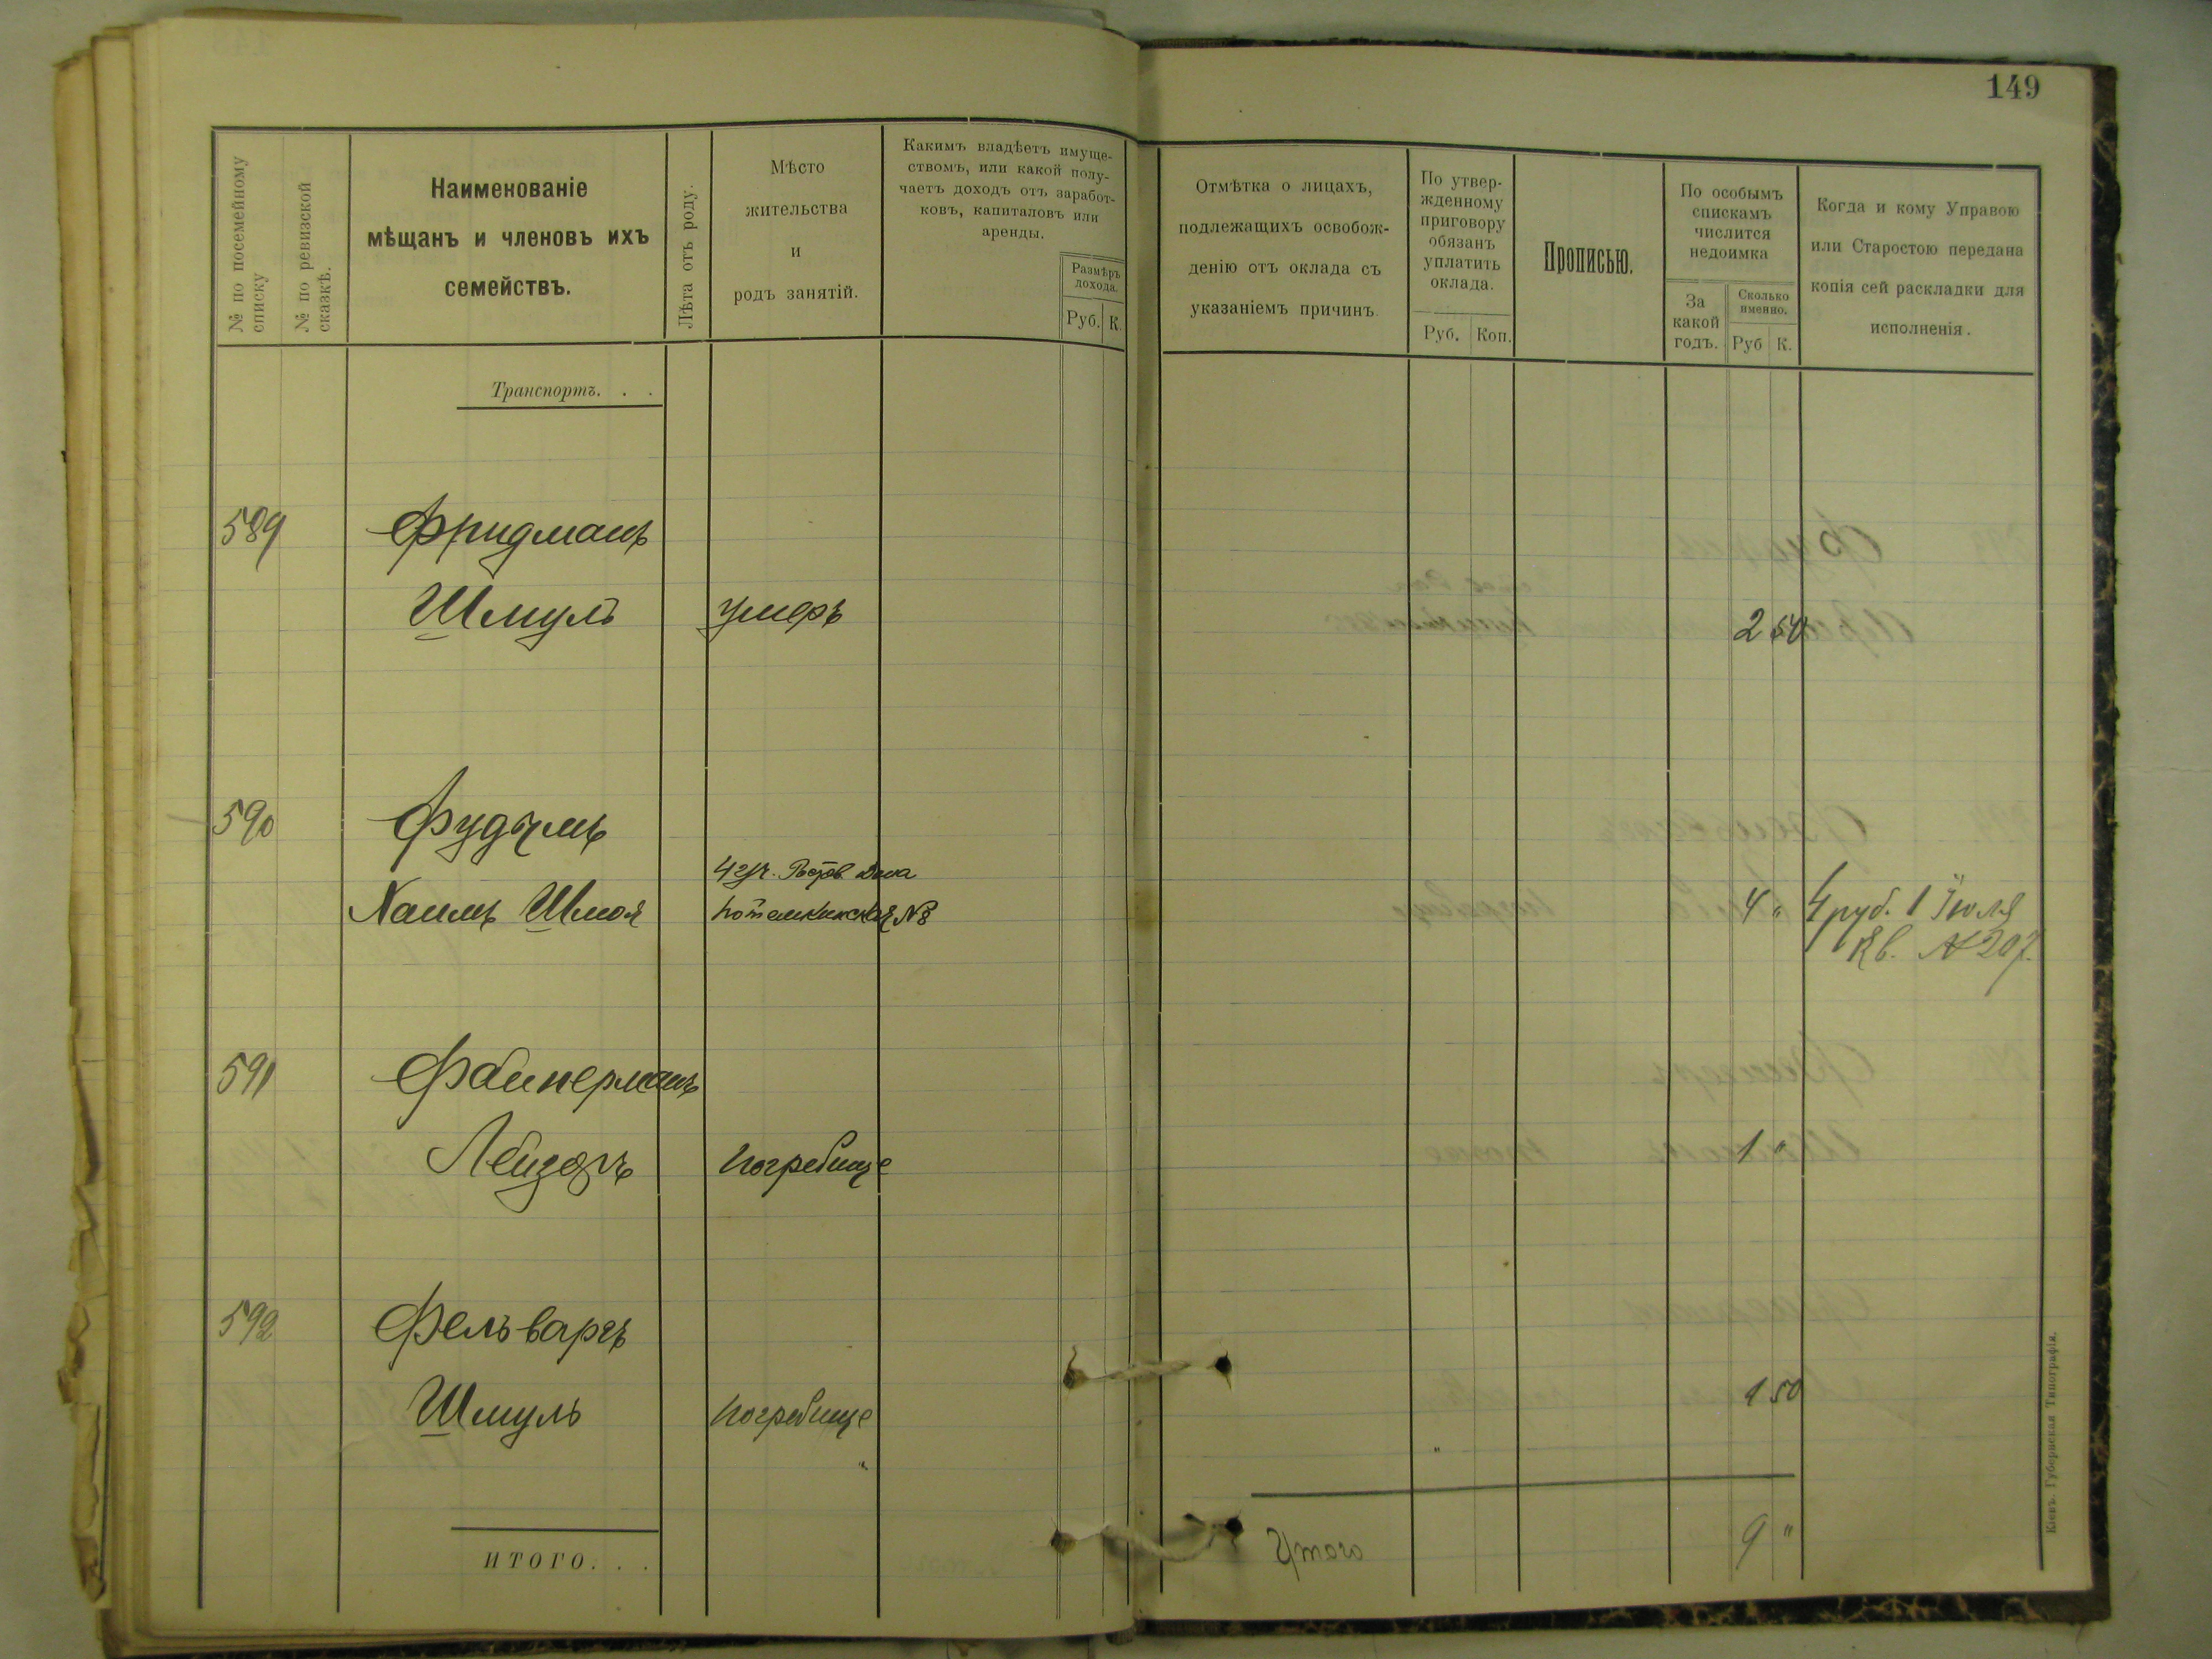 149
№ по посемейному списку
№ по ревизской сказкѣ.
Наименованіе
мѣщанъ и членовъ ихъ
семействъ.
Лѣта отъ роду.
Мѣсто
жительства
и
родъ занятій.
Какимъ владѣетъ имуще-
ствомъ, или какой полу-
чаетъ доходъ отъ заработ-
ковъ, капиталовъ или
аренды.
Размѣръ
дохода.
Руб. К.
Отмѣтка о лицахъ,
подлежащихъ освобож-
денію отъ оклада съ
указаніемъ причинъ
По утвер-
жденному
приговору
обязанъ
уплатить
оклада.
Руб. Коп.
Прописью.
По особымъ
спискамъ
числится
недоимка
За
какой
годъ.
Сколько
именно.
Руб К.
Когда и кому Управою
или Старостою передана
копія сей раскладки для
исполненія.
Транспортъ. . .
589 Фридманъ
Шмуль умеръ 2 50
590 Фудымъ
4 уч. Ростов. Дона
Хаимъ Шмоя Потемкинская №8 4 " 4 руб. 1 Іюля
Кв. № 207.
591 Файнерманъ
Лейзоръ Погребище 1 "
592 Фельваргъ
Шмуль Погребище 1 50
" "
ИТОГО. . .
Итого 9 "
Кіевъ. Губернская Типографія.